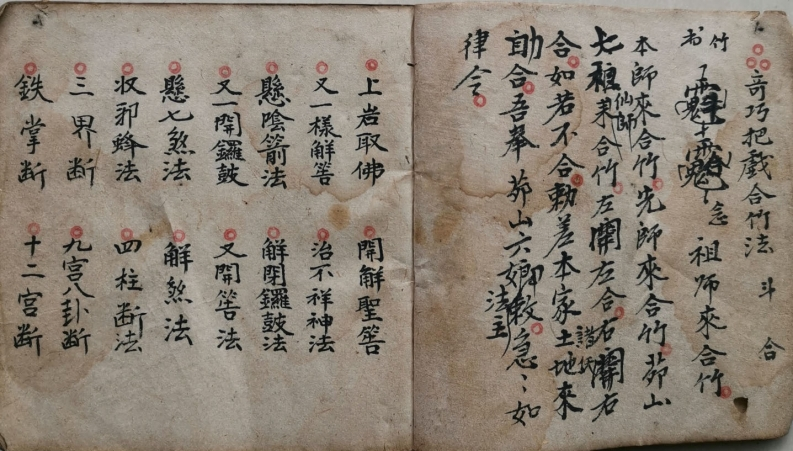 奇巧把戲合竹法 斗 合
竹
書 念 祖师來合竹
本師來合竹先師來合竹茆山
七祖仙師來合竹左開左合右開右
合如若不合勅差本家土地來
助合吾奉茆山六娘法主敕急〻如
律令
上岩取佛 開解聖筶
又一樣解筶 治不祥神法
懸陰箭法 解閉鑼鼓法
又一開鑼鼓 又開筶法
懸七煞法 解煞法
收邪蜂法 四柱断法
三界断 九宫八卦断
鉄掌断 十二宫断